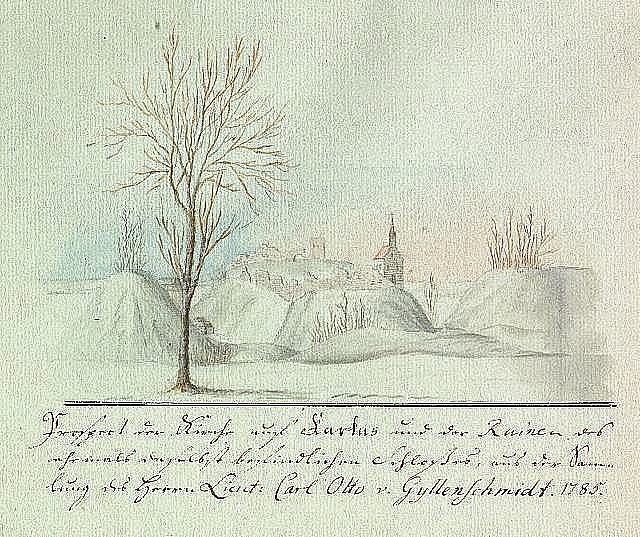 Prospect der Kirche auf Karkus und der Ruinen des
ehemals daselbst befindlichen Schloßes, aus der Samm-
lung des Herrn Lieut: Carl Otto v. Gyllenschmidt. 1785.